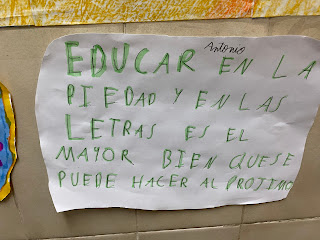 Antonio
EDUCAR EN LA
PIEDAD Y EN LAS
LETRAS ES EL
MAYOR BIEN QUESE
PUEDE HACER AL PROJIMO